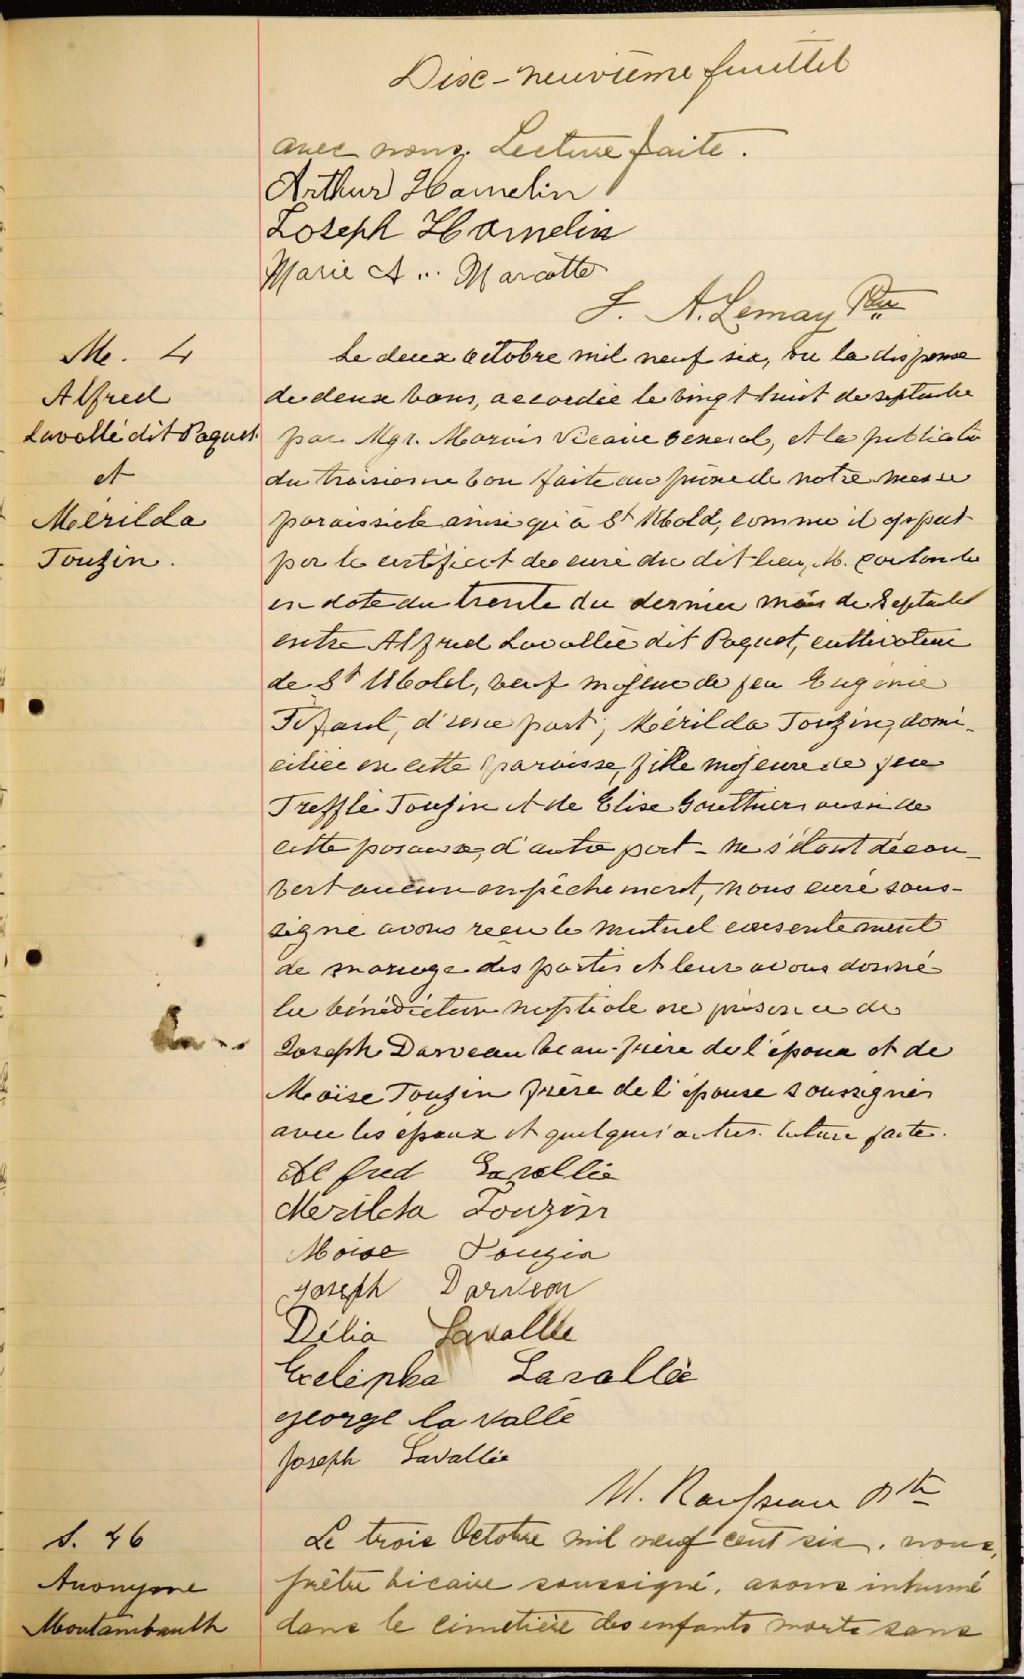 Dixe-neuvième feuillet
avec nous. Lecture faite.
Arthur Hamelin
Joseph Hamelin
Marie A... Marcotte
J. A. Lemay Ptre
M. 4
Alfred
Lavallé dit Paquet
et
Mérilda
Touzin.
Le deux octobre mil neuf six, vu la dispense
de deux bans, accordée le vingt huit de septembre
par Mgr. Marois Vicaire General, et la publicatio
du troisieme ban faite au prône de notre messe
paroissiale ainsi qu'à St Ubald, comme il appert
par le certificat du curé du dit lieu, M.
en date du trente du dernier mois de Septembre
entre Alfred Lavallée dit Paquet, cultivateur
de St Ubald, veuf majeur de feu Eugénie
d'une part; Mérilda Touzin, domi-
ciliée en cette paroisse, fille majeure de feu
Trefflé Touzin et de Elise Gauthier aussi de
cette paroisse, d'autre part - ne s'étant décou-
vert aucun empêchement, nous curé sous-
signé avons reçu le mutuel consentement
de mariage des parties et leur avons donné
la bénédiction nuptiale en présence de
Joseph Darveau beau-frère de l'époux et de
Moïse Touzin frère de l'épouse soussignés
avec les époux et quelques autres. lecture faite.
Alfred Lavallée
Merilda Touzin
Moise Touzin
Joseph Darveau
Délia Lavallée
Lavallée
george la vallé
Joseph Lavallée
U. Rousseau Ptre
S. 46
Anonyme
Montambault
Le trois Octobre mil neuf cent six, nous,
prêtre vicaire soussigné, avons inhumé
dans le cimetière des enfants morts sans